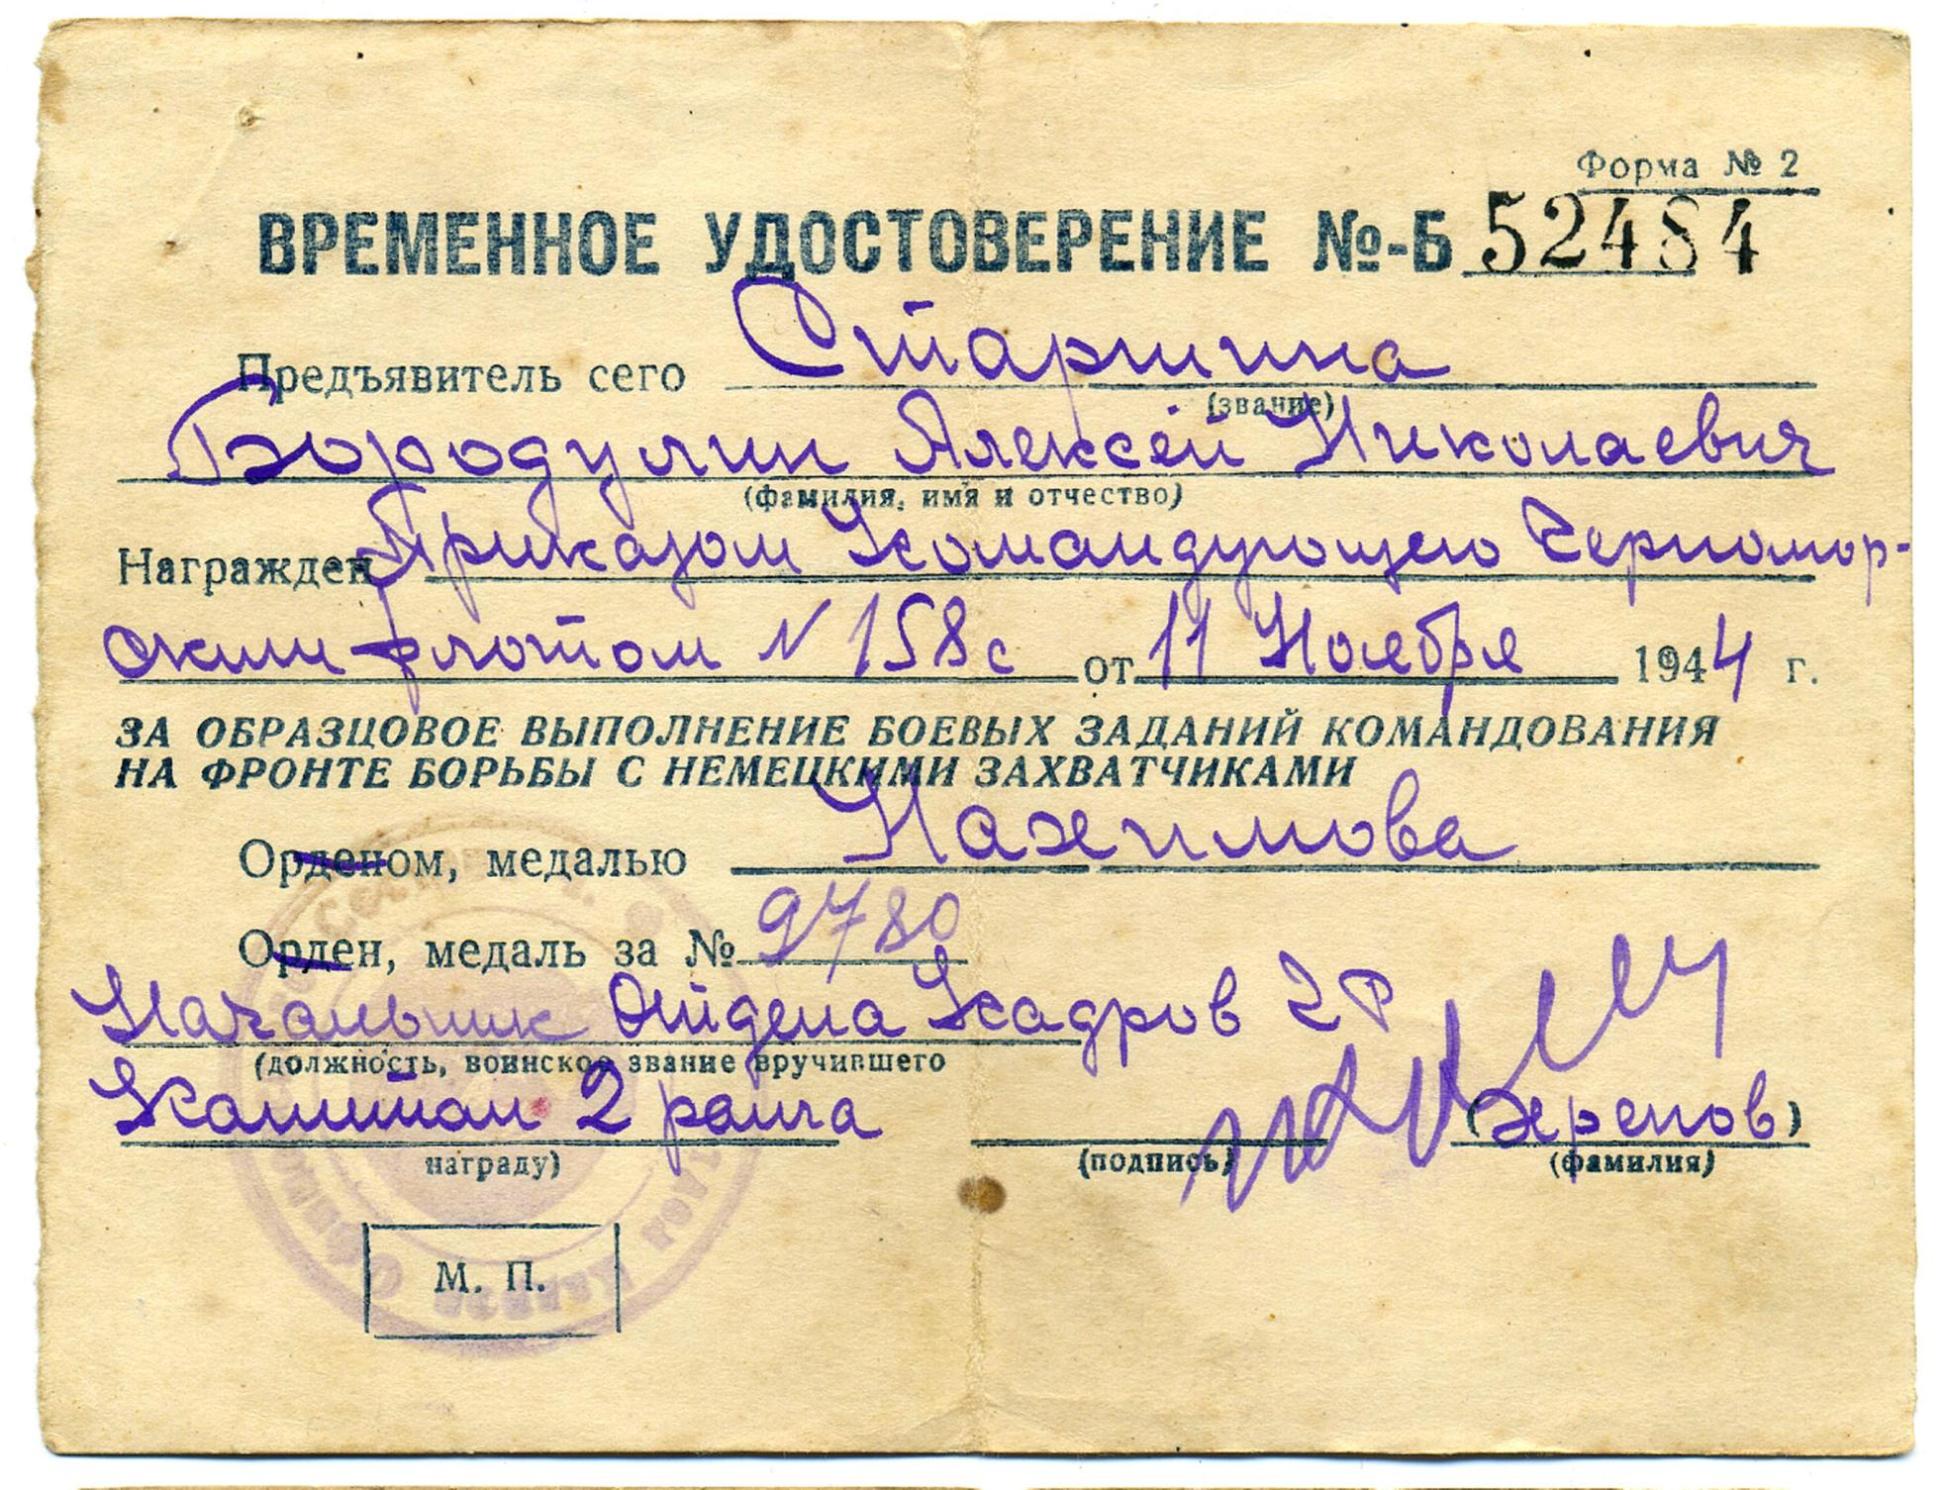 Форма № 2
ВРЕМЕННОЕ УДОСТОВЕРЕНИЕ №-Б 52484
Предъявитель сего Старшина
(звание)
Бородулин Алексей Николаевич
(фамилия, имя и отчество)
Награжден Приказом Командующего Черномор-
ским флотом N 158с от 11 Ноября 1944 г.
ЗА ОБРАЗЦОВОЕ ВЫПОЛНЕНИЕ БОЕВЫХ ЗАДАНИЙ КОМАНДОВАНИЯ
НА ФРОНТЕ БОРЬБЫ С НЕМЕЦКИМИ ЗАХВАТЧИКАМИ
Орденом, медалью Нахимова
Орден, медаль за № 9780
Начальник Отдела Кадров
(должность, воинское звание вручившего
Капитан 2 ранга (Хренов)
награду) (подпись) (фамилия)
М. П.